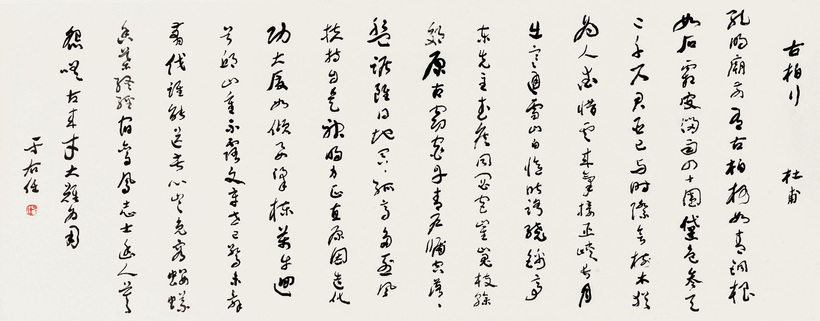 古柏行 杜甫
孔明廟前有古柏柯如青銅根
如石霜皮溜雨四十圍黛色參天
二千尺君臣已與時際會樹木猶
為人愛惜雲來氣接巫峽長月
出寒通雪山白憶昨路繞錦亭
東先主武侯同閟宮崔嵬枝幹
郊原古窈窕丹青戶牖空落落
盤踞雖得地冥冥孤高多烈風
扶持自是神明力正直原因造化
功大廈如傾要梁棟萬牛迴
首邱山重不露文章世已驚未辭
翦伐誰能送苦心豈免容螻蟻
香葉終經宿鸞鳳志士幽人莫
怨嗟古來材大難為用
于右任